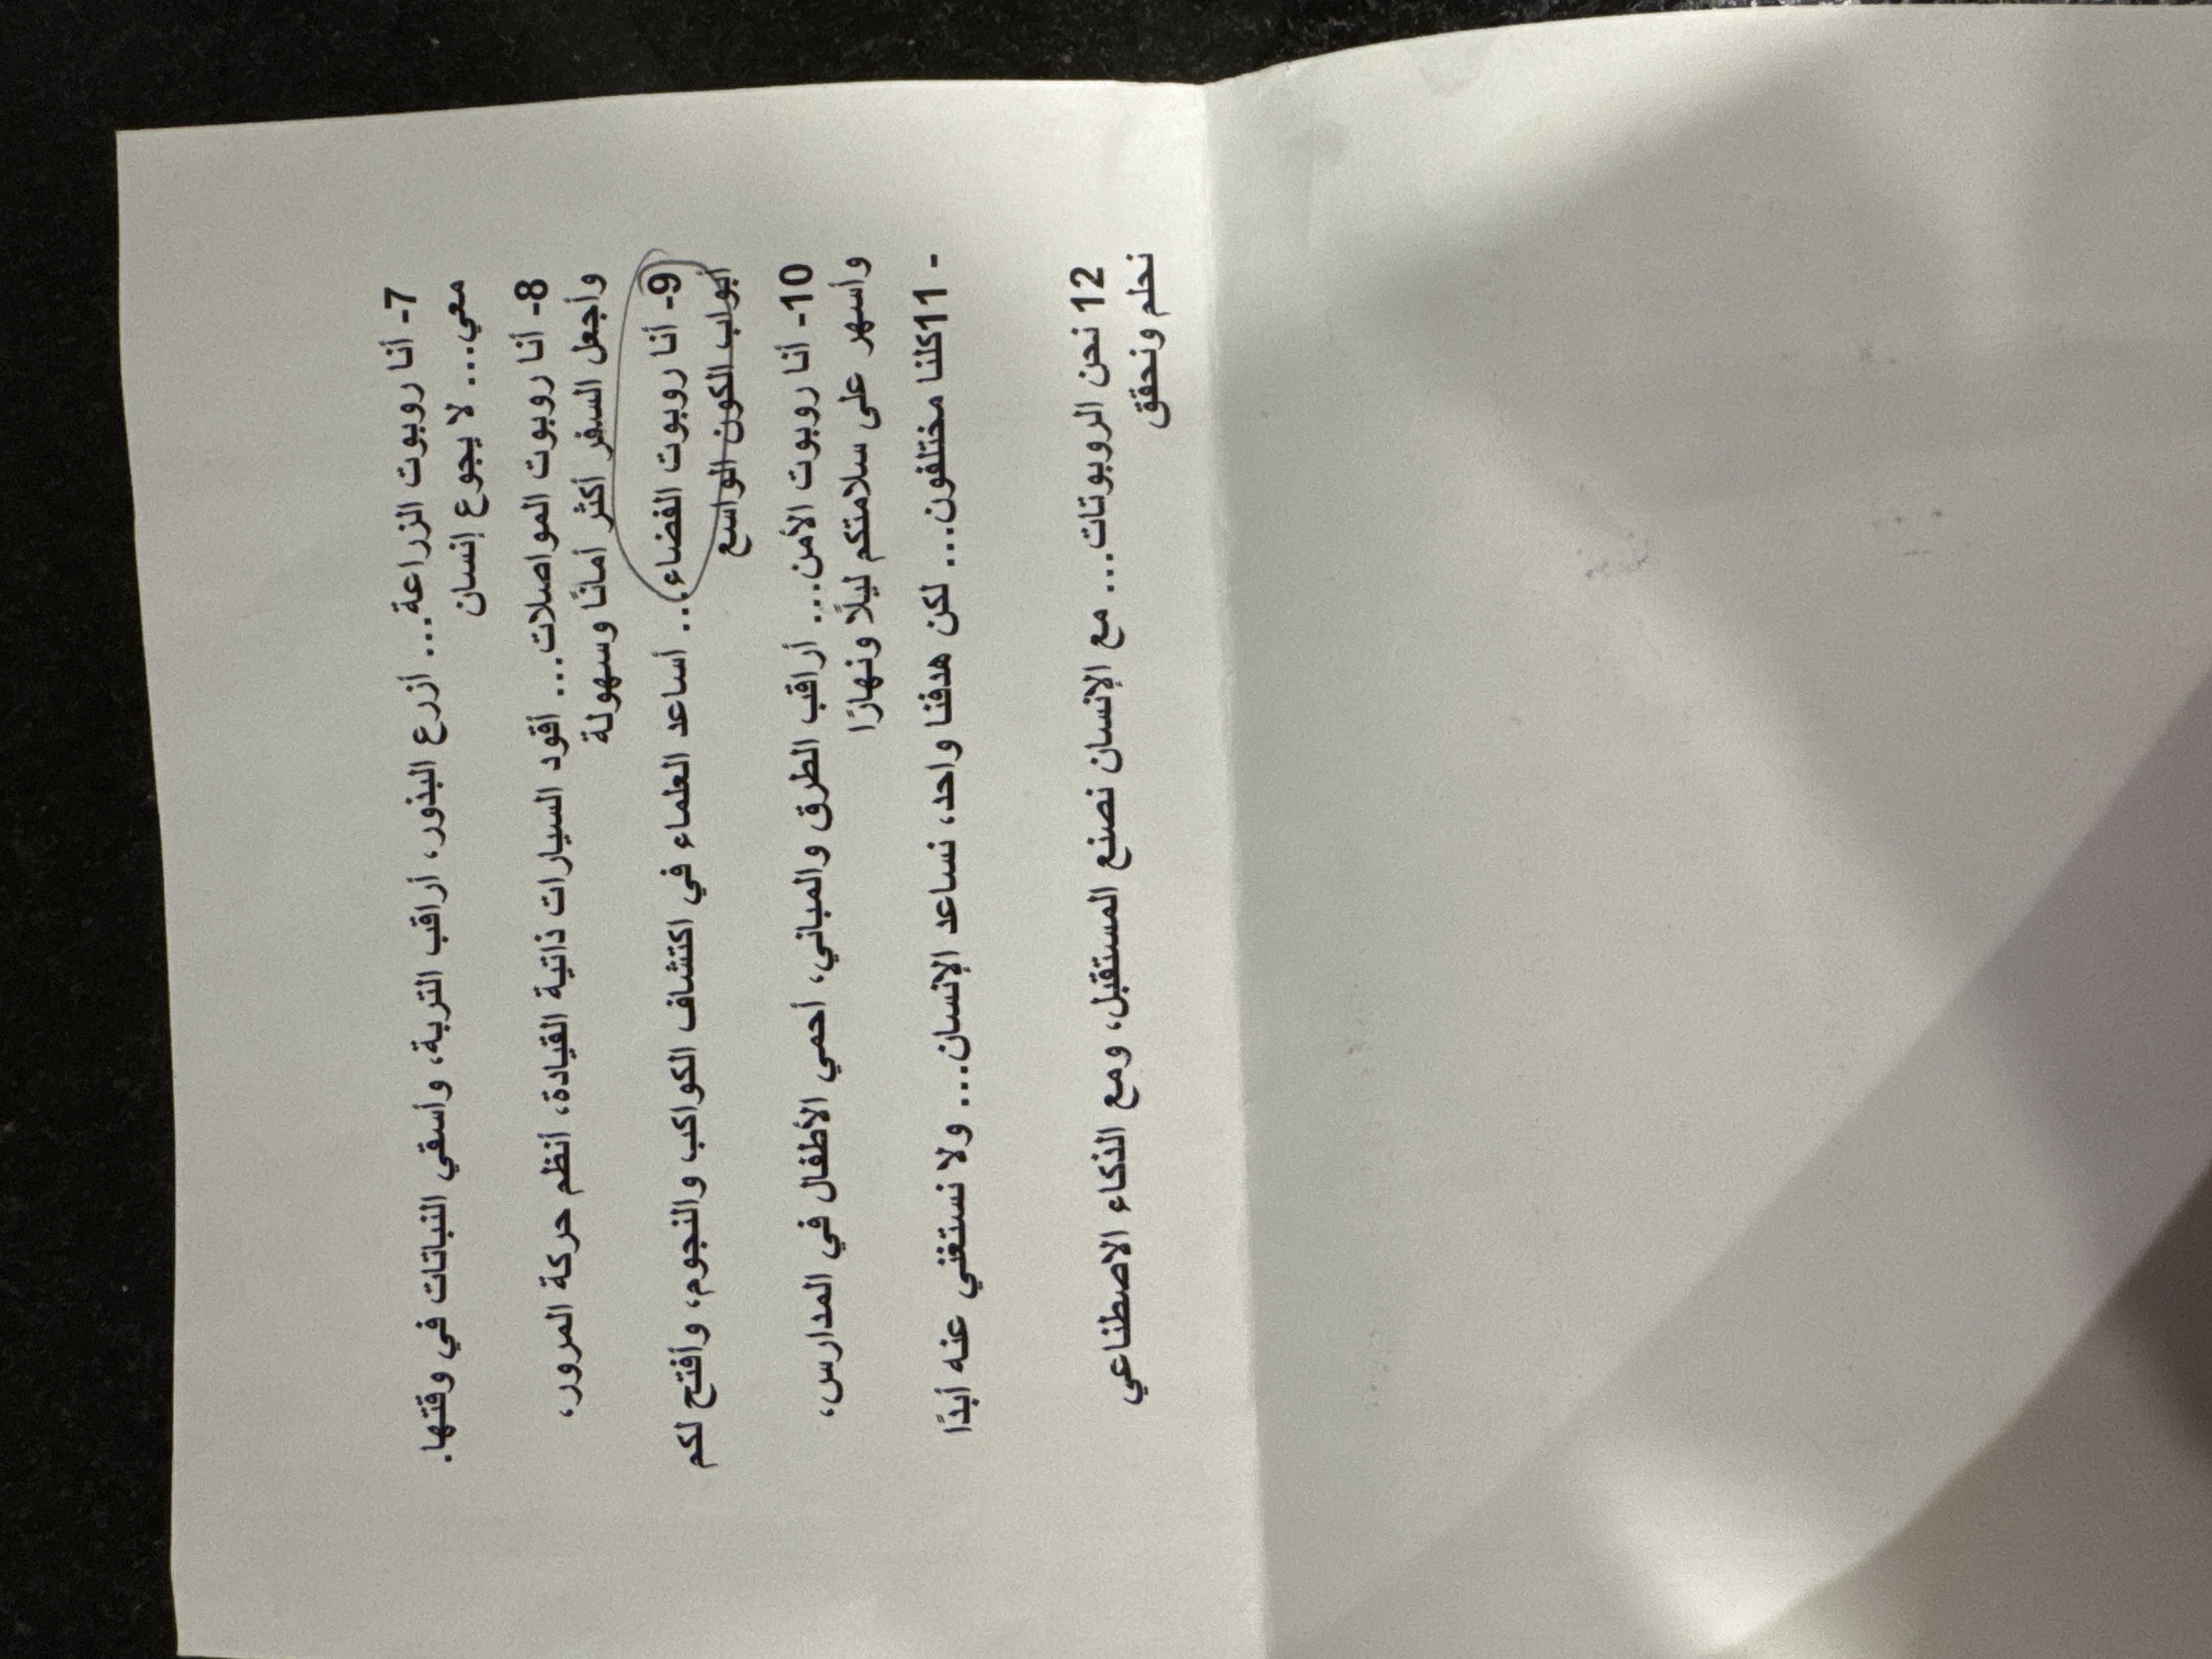 7- أنا روبوت الزراعة... أزرع البذور، أراقب التربة، وأسقي النباتات في وقتها.
معي... لا يجوع إنسان
8- أنا روبوت المواصلات... أقود السيارات ذاتية القيادة، أنظم حركة المرور،
وأجعل السفر أكثر أمانًا وسهولة
9- أنا روبوت الفضاء... أساعد العلماء في اكتشاف الكواكب والنجوم، وأفتح لكم
أبواب الكون الواسع
10- أنا روبوت الأمن... أراقب الطرق والمباني، أحمي الأطفال في المدارس،
وأسهر على سلامتكم ليلًا ونهارًا
- 11كلنا مختلفون... لكن هدفنا واحد، نساعد الإنسان... ولا نستغني عنه أبدًا
12 نحن الروبوتات... مع الإنسان نصنع المستقبل، ومع الذكاء الاصطناعي
نحلم ونحقق